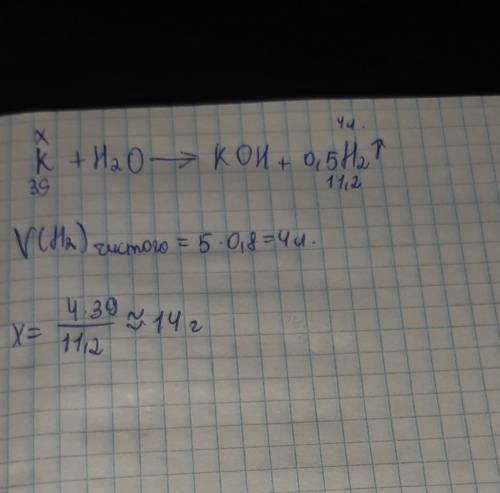 x 4л.
K + H2O → KOH + 0,5H2↑
39 11,2
V(H2) чистого = 5·0,8=4л.
x= 4·39/11,2 ≈ 14 г